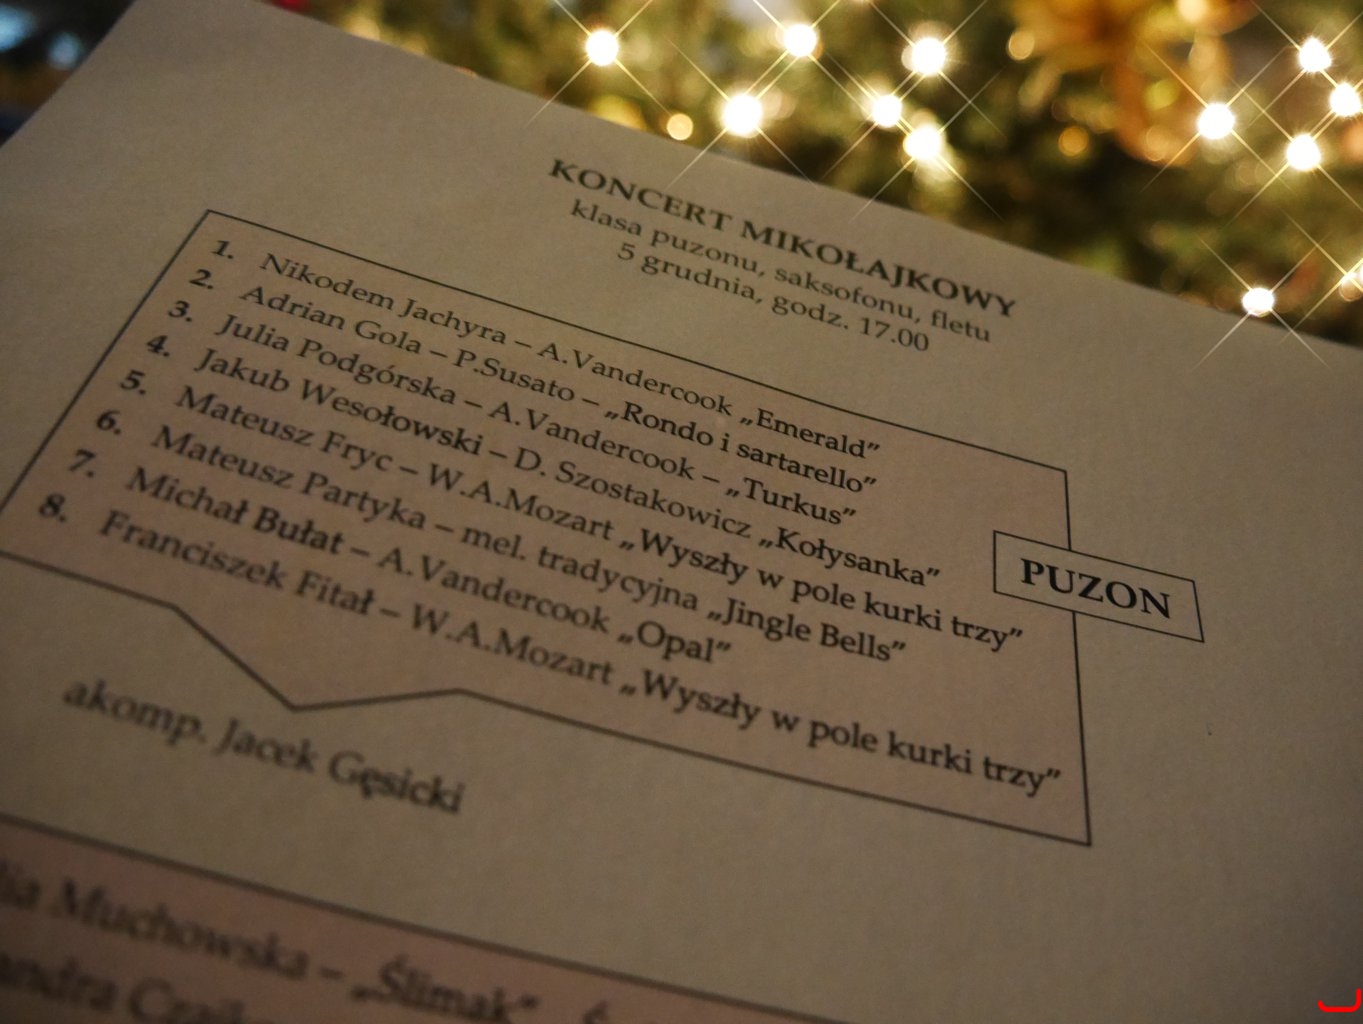 KONCERT MIKOŁAJKOWY
klasa puzonu, saksofonu, fletu
5 grudnia, godz. 17.00
1. Nikodem Jachyra – A.Vandercook „Emerald”
2. Adrian Gola – P.Susato – „Rondo i sartarello”
3. Julia Podgórska – A.Vandercook – „Turkus”
4. Jakub Wesołowski – D. Szostakowicz „Kołysanka”
5. Mateusz Fryc – W.A.Mozart „Wyszły w pole kurki trzy”
6. Mateusz Partyka – mel. tradycyjna „Jingle Bells”
7. Michał Bułat – A.Vandercook „Opal”
8. Franciszek Fitał – W.A.Mozart „Wyszły w pole kurki trzy”
PUZON
akomp. Jacek Gęsicki
Muchowska – „Ślimak”